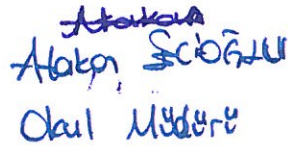 Atakan
Atakan ŞCİOĞLU
Okul Müdürü